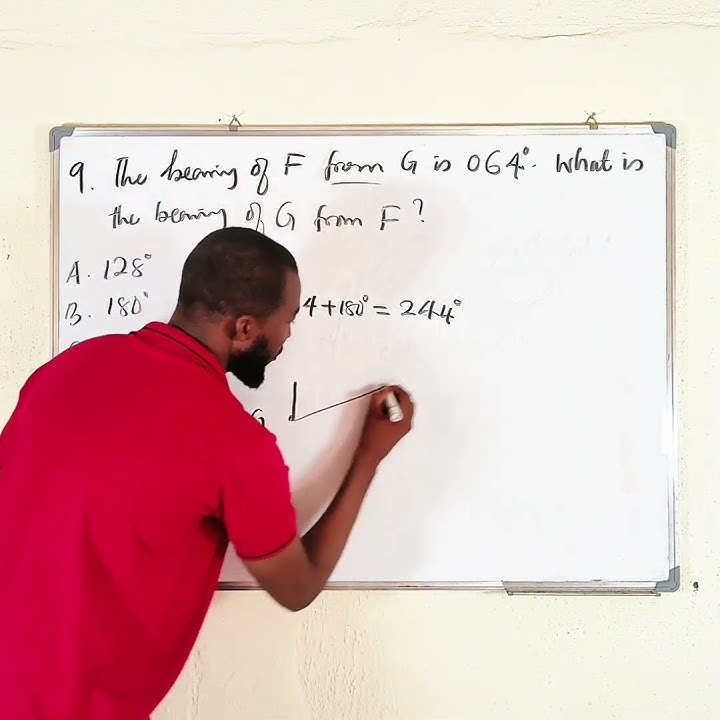 9. The bearing of F from G is 064°. What is
the bearing of G from F?
A. 128°
B. 180°
4 + 180° = 244°
G